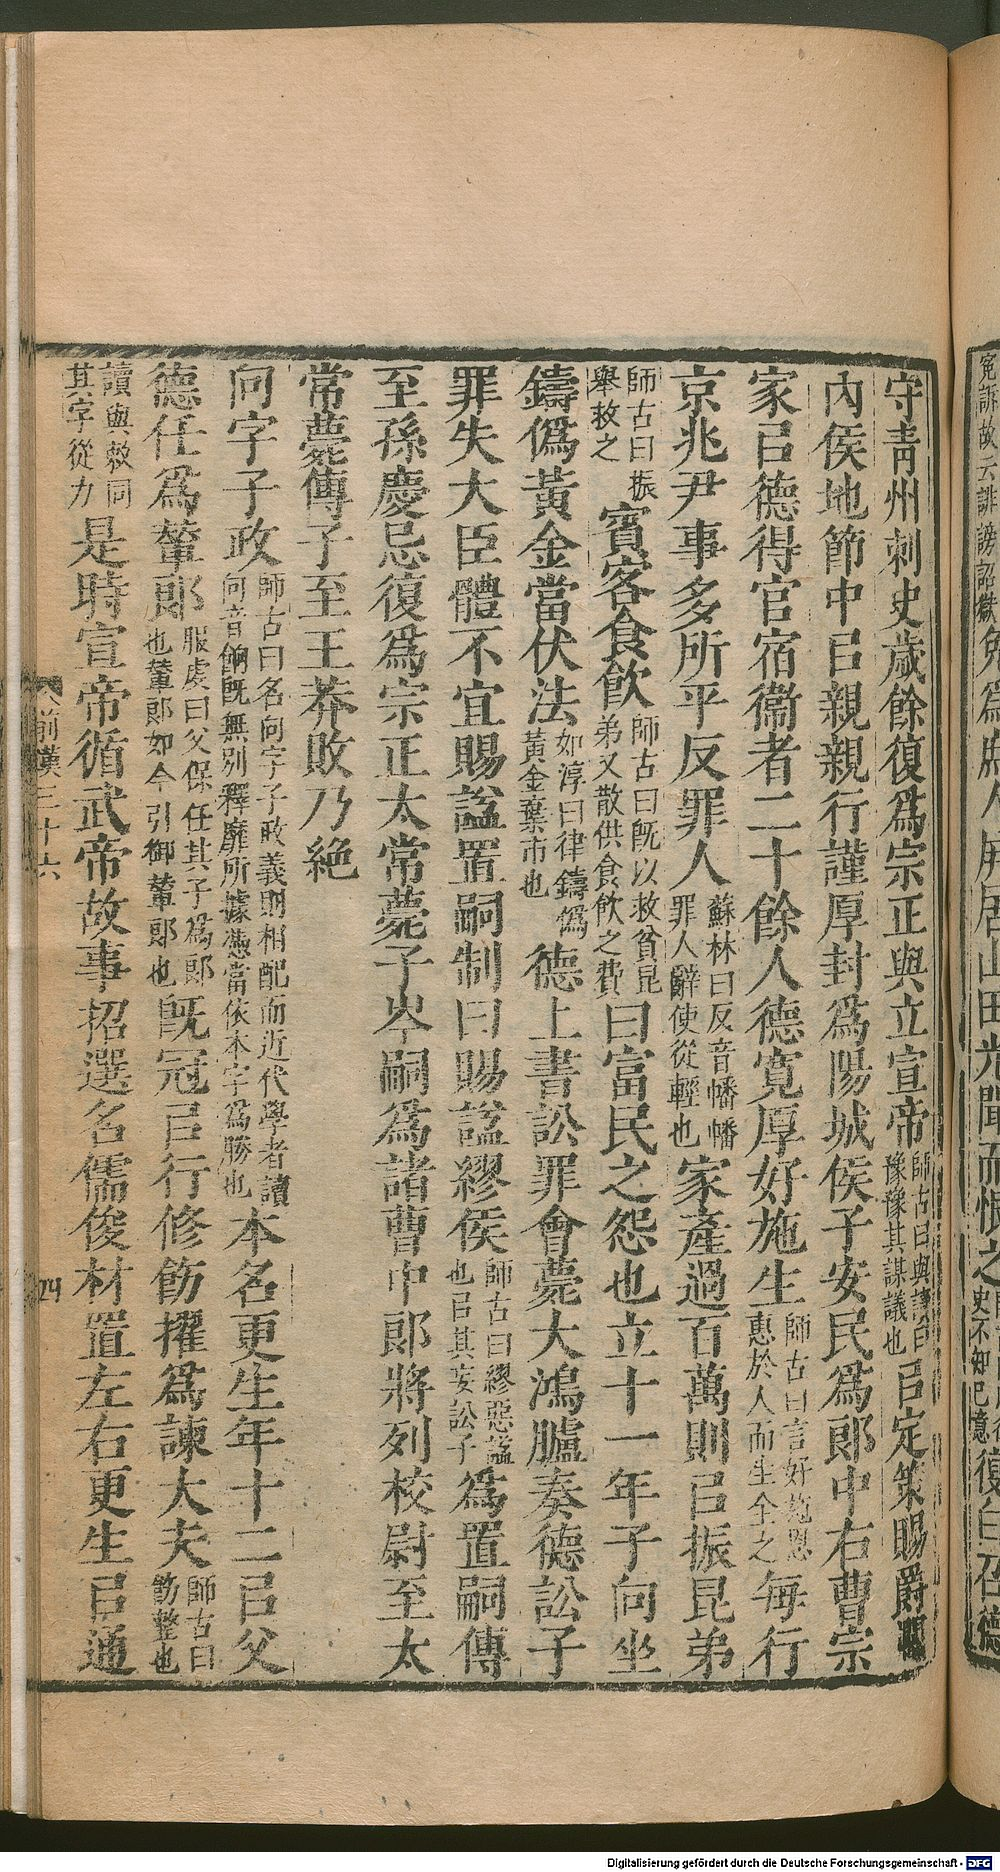 寃訴故云誹謗詔獄免爲庶人屏居山田光聞而恨之
史不知己意復白召德
守靑州刺史歲餘復爲宗正與立宣帝師古曰與讀曰豫豫其謀議也㠯定策賜爵關
內侯地節中㠯親親行謹厚封爲陽城侯子安民爲郎中右曹宗
家㠯德得官宿衞者二十餘人德寬厚好施生師古曰言好施恩惠於人而生全之每行
京兆尹事多所平反罪人蘇林曰反音幡幡罪人辭使從輕也家產過百萬則㠯振昆弟
師古曰振舉救之賓客食飮師古曰旣以救貧昆弟又散供食飮之費曰富民之怨也立十一年子向坐
鑄僞黃金當伏法如淳曰律鑄僞黃金棄市也德上書訟罪會薨大鴻臚奏德訟子
罪失大臣體不宜賜諡置嗣制曰賜諡繆侯師古曰繆惡諡也㠯其妄訟子爲置嗣傳
至孫慶忌復爲宗正太常薨子岑嗣爲諸曹中郎將列校尉至太
常薨傳子至王莽敗乃絶
向字子政師古曰名向字子政義則相配而近代學者讀向音餉旣無別釋靡所據憑當依本字爲勝也本名更生年十二㠯父
德任爲輦郎服虔曰父保任其子爲郎也輦郎如今引御輦郎也旣冠㠯行修飭擢爲諫大夫師古曰飭整也
讀與敕同其字從力是時宣帝循武帝故事招選名儒俊材置左右更生㠯通
前漢三十六
24
Digitalisierung gefördert durch die Deutsche Forschungsgemeinschaft - DFG